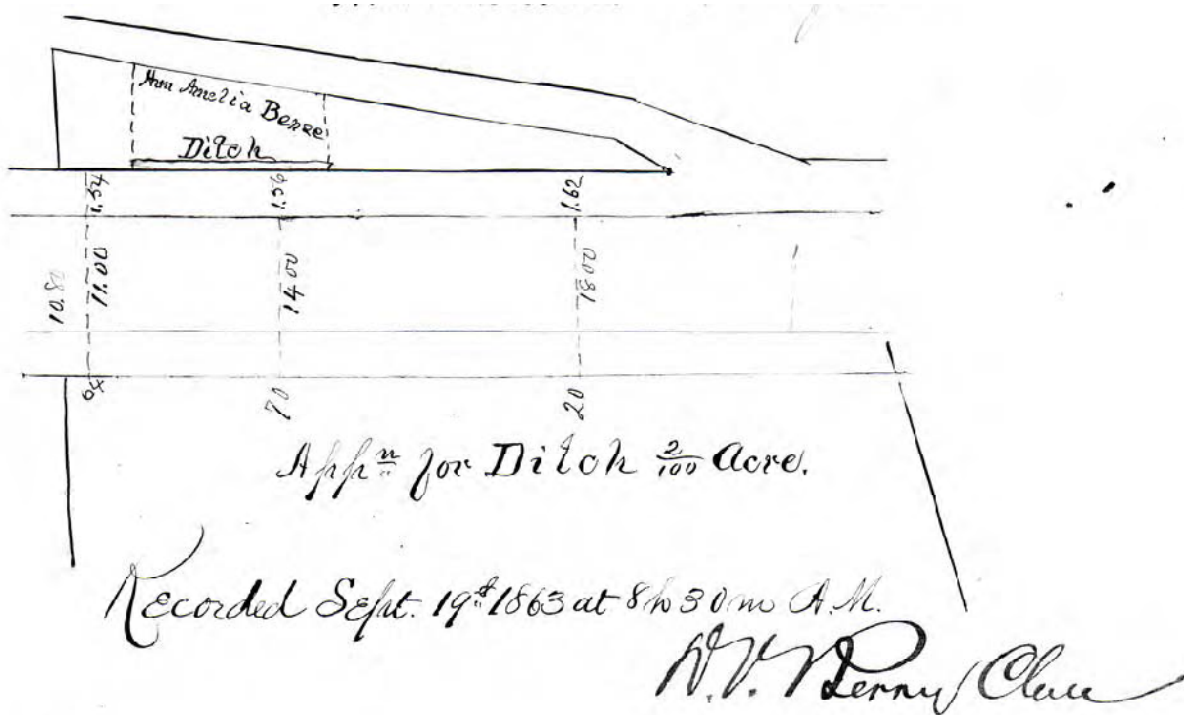 Ann Amelia Besse
Ditch
1.54
1.56
1.62
10.80
11.00
14 00
18 00
64
70
20
App.n for Ditch 2/100 Acre.
Recorded Sept. 19th 1863 at 8 h 30 m A.M.